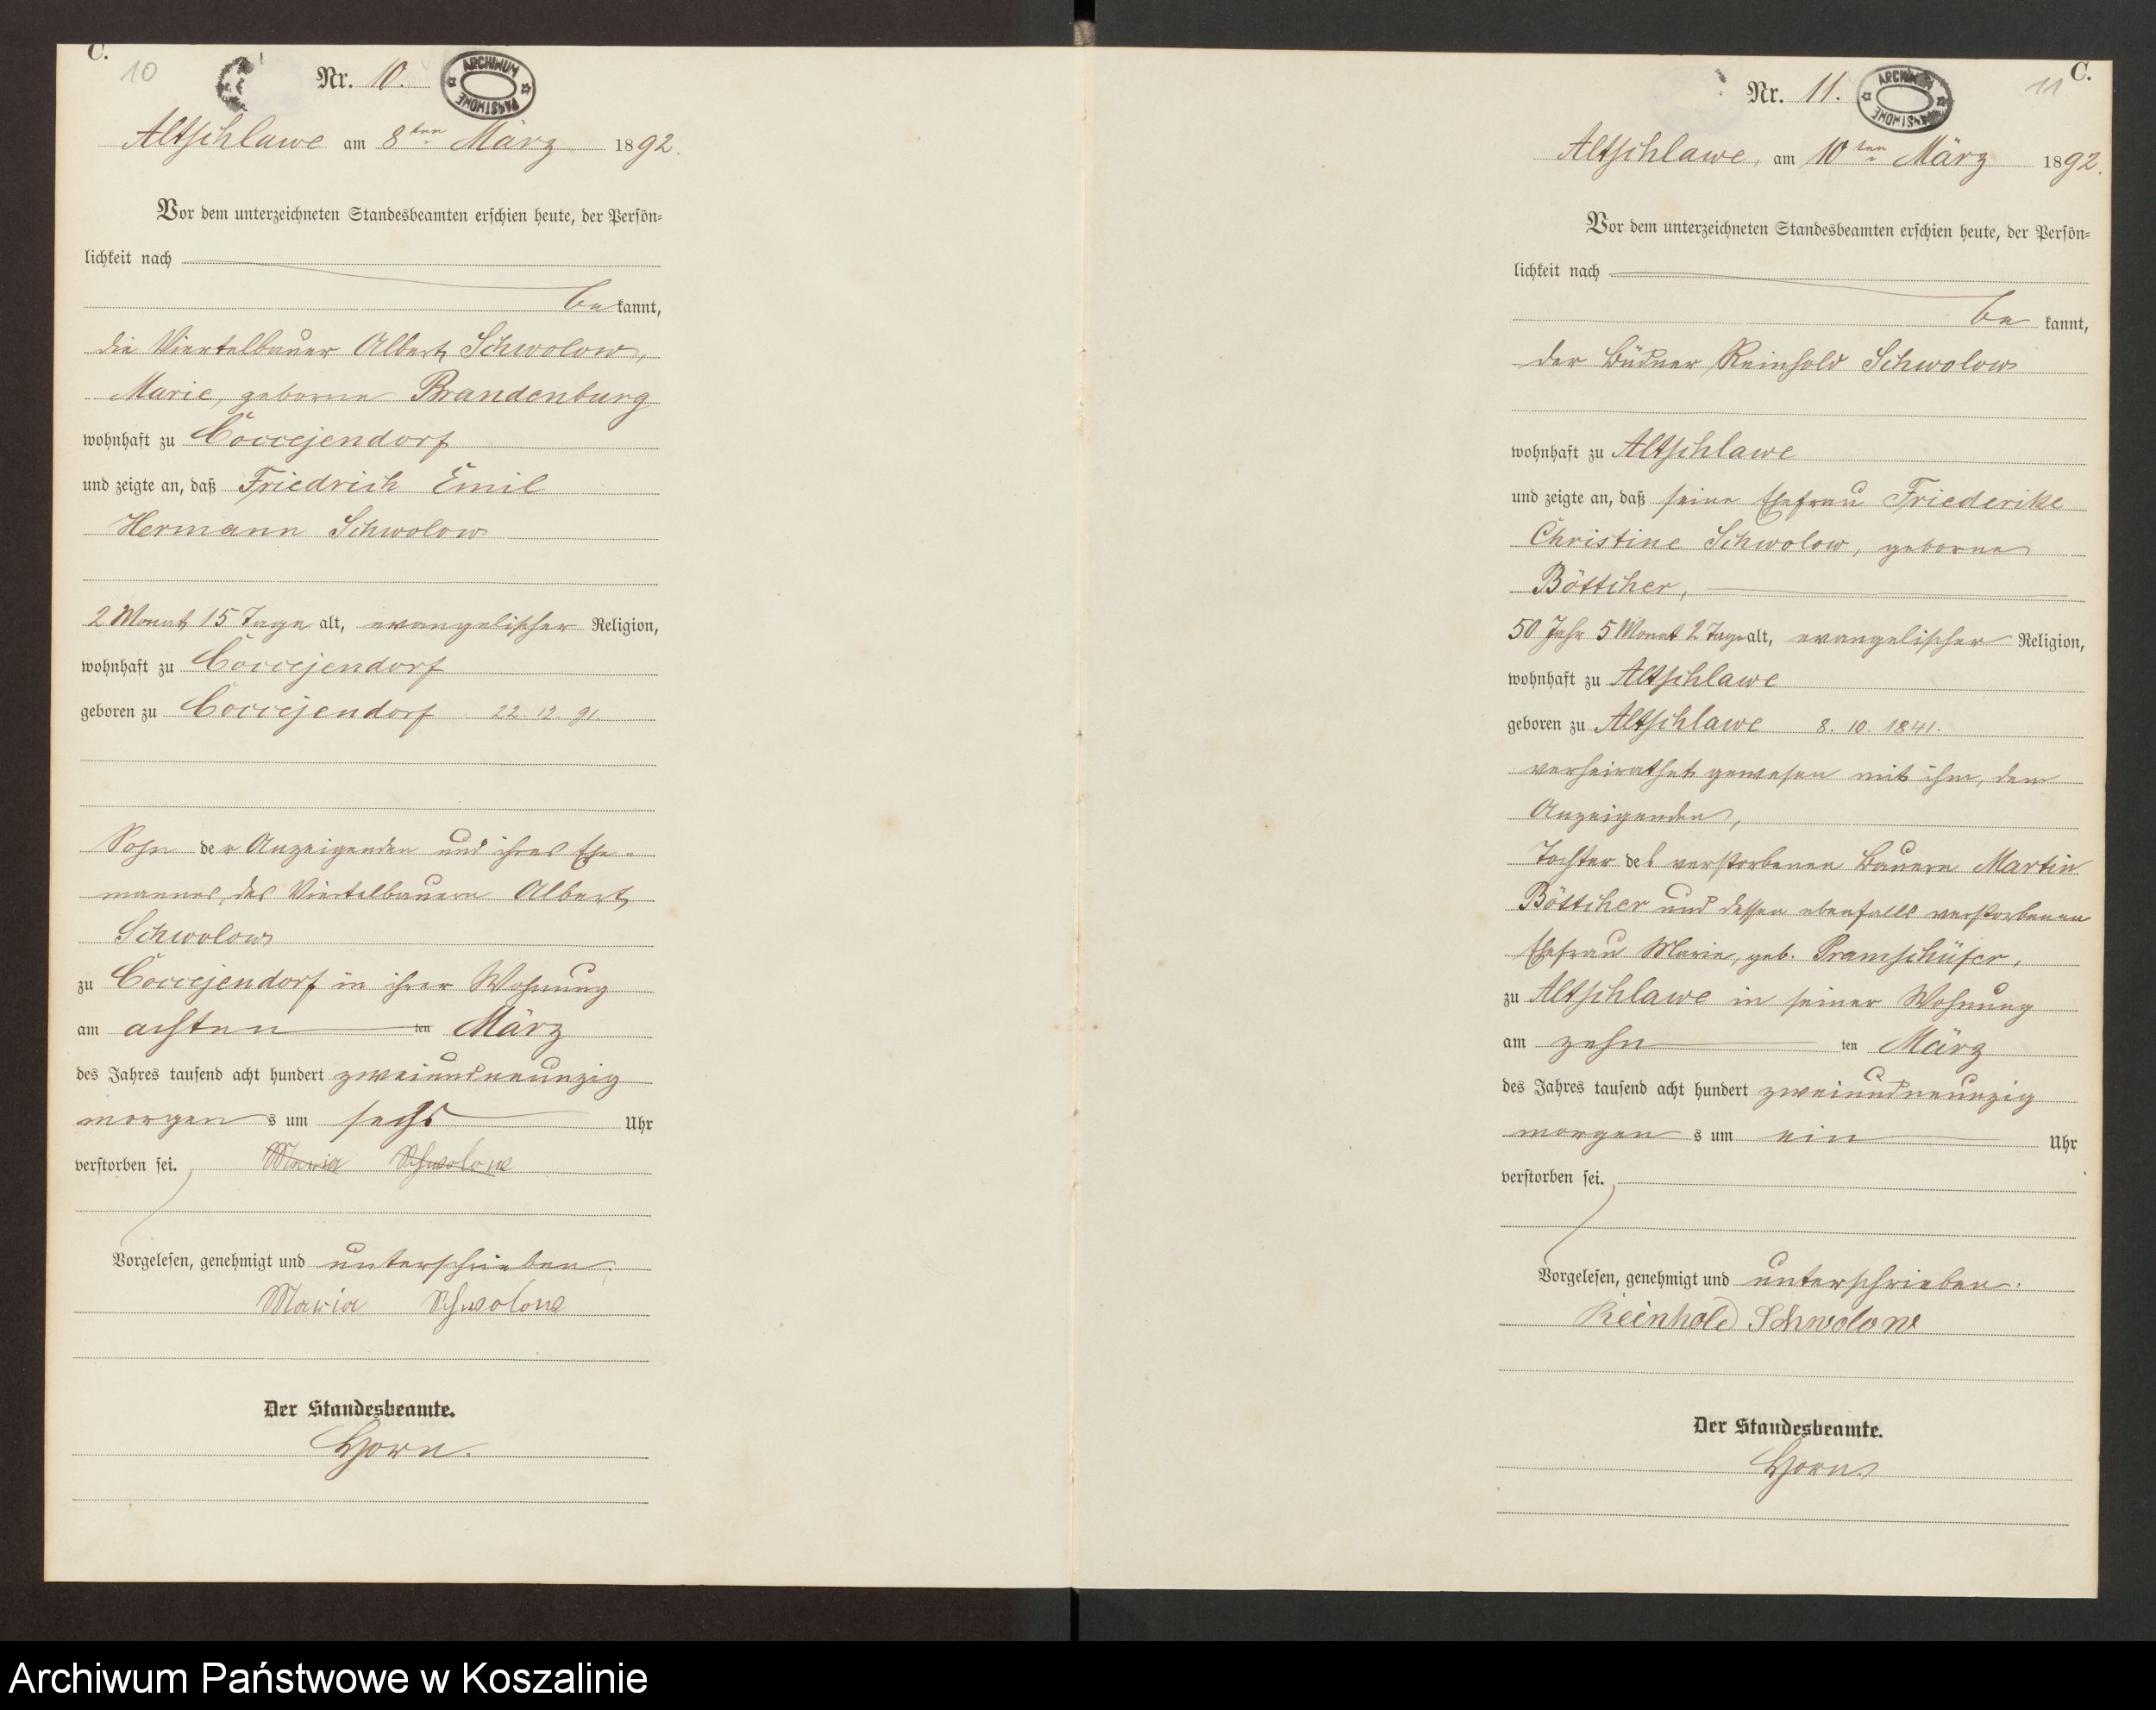 C.
10
Nr. 10.
ARCHIWUM PAŃSTWOWE
Altschlawe am 8ten März 1892.
Vor dem unterzeichneten Standesbeamten erschien heute, der Persön=
lichkeit nach
bekannt,
die Viertelbauer Albert Schwolow,
Marie, geborne Brandenburg
wohnhaft zu Coccejendorf
und zeigte an, daß Friedrich Emil
Hermann Schwolow
2 Monat 15 Tage alt, evangelischer Religion,
wohnhaft zu Coccejendorf
geboren zu Coccejendorf 22. 12. 91.
Sohn der Anzeigenden und ihres Ehe=
mannes, des Viertelbauern Albert
Schwolow
zu Coccejendorf in ihrer Wohnung
am achten ten März
des Jahres tausend acht hundert zweiundneunzig
morgens um sechs Uhr
verstorben sei. Maria Schwolow
Vorgelesen, genehmigt und unterschrieben.
Maria Schwolow
Der Standesbeamte.
Horn.
C.
11
Nr. 11.
ARCHIWUM PAŃSTWOWE
Altschlawe, am 10ten März 1892.
Vor dem unterzeichneten Standesbeamten erschien heute, der Persön=
lichkeit nach
bekannt,
der Büdner Reinhold Schwolow
wohnhaft zu Altschlawe
und zeigte an, daß seine Ehefrau Friederike
Christine Schwolow, geborne
Böttcher,
50 Jahr 5 Monat 2 Tage alt, evangelischer Religion,
wohnhaft zu Altschlawe
geboren zu Altschlawe 8. 10. 1841.
verheirathet gewesen mit ihm, dem
Anzeigenden,
Tochter des verstorbenen Bauern Martin
Böttcher und dessen ebenfalls verstorbenen
Ehefrau Marie, geb. Pramschüfer,
zu Altschlawe in seiner Wohnung
am zehn ten März
des Jahres tausend acht hundert zweiundneunzig
morgens um ein Uhr
verstorben sei.
Vorgelesen, genehmigt und unterschrieben.
Reinhold Schwolow
Der Standesbeamte.
Horn
Archiwum Państwowe w Koszalinie